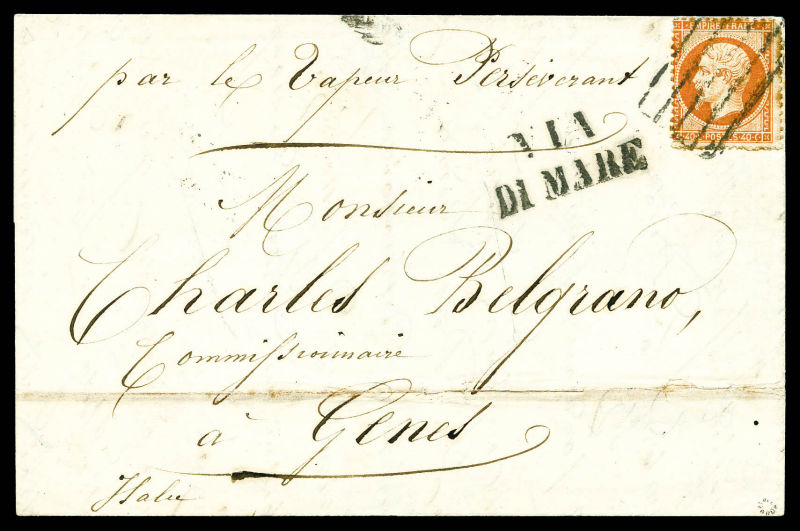 par le Vapeur Persévérant
EMPIRE FRANC
40 C POSTES 40 C
VIA
DI MARE
Monsieur
Charles Belgrano,
Commissionnaire
à Gênes
Italie